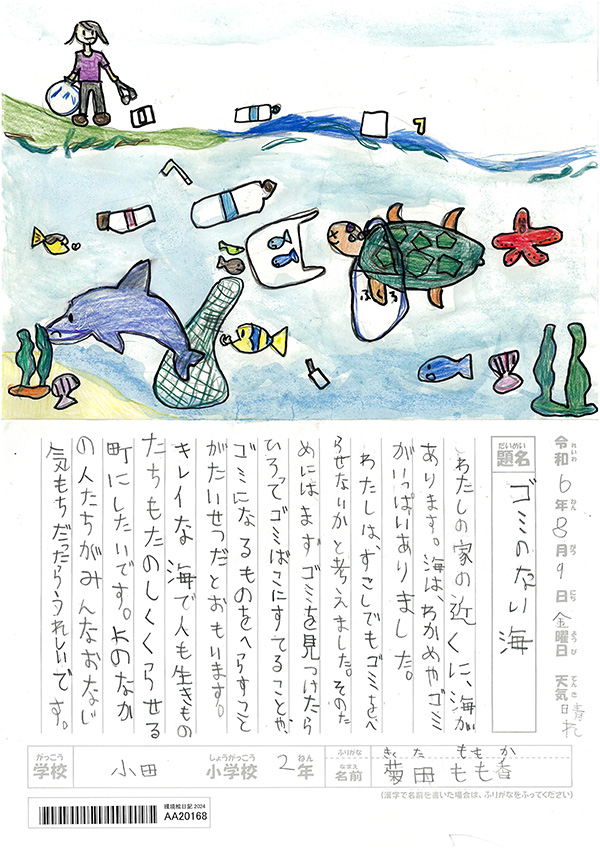 ふくろ
令和6年8月9日 金曜日 天気 晴れ
れいわ ねん がつ にち ようび てんき
だいめい
題名
ゴミのない海
わたしの家の近くに、海が
あります。海は、わかめやゴミ
がいっぱいありました。
わたしは、すこしでもゴミをへ
らせないかと考えました。そのた
めにはまずゴミを見つけたら
ひろってゴミばこにすてることや、
ゴミになるものをへらすこと
がたいせつだとおもいます。
キレイな海で人も生きもの
たちもたのしくくらせる
町にしたいです。よのなか
の人たちがみんなおなじ
気もちだったらうれしいです。
がっこう しょうがっこう ねん ふりがな きくた ももか
学校 小田 小学校 2年 なまえ 名前 菊田もも香
(漢字で名前を書いた場合は、ふりがなをふってください)
環境絵日記2024
AA20168